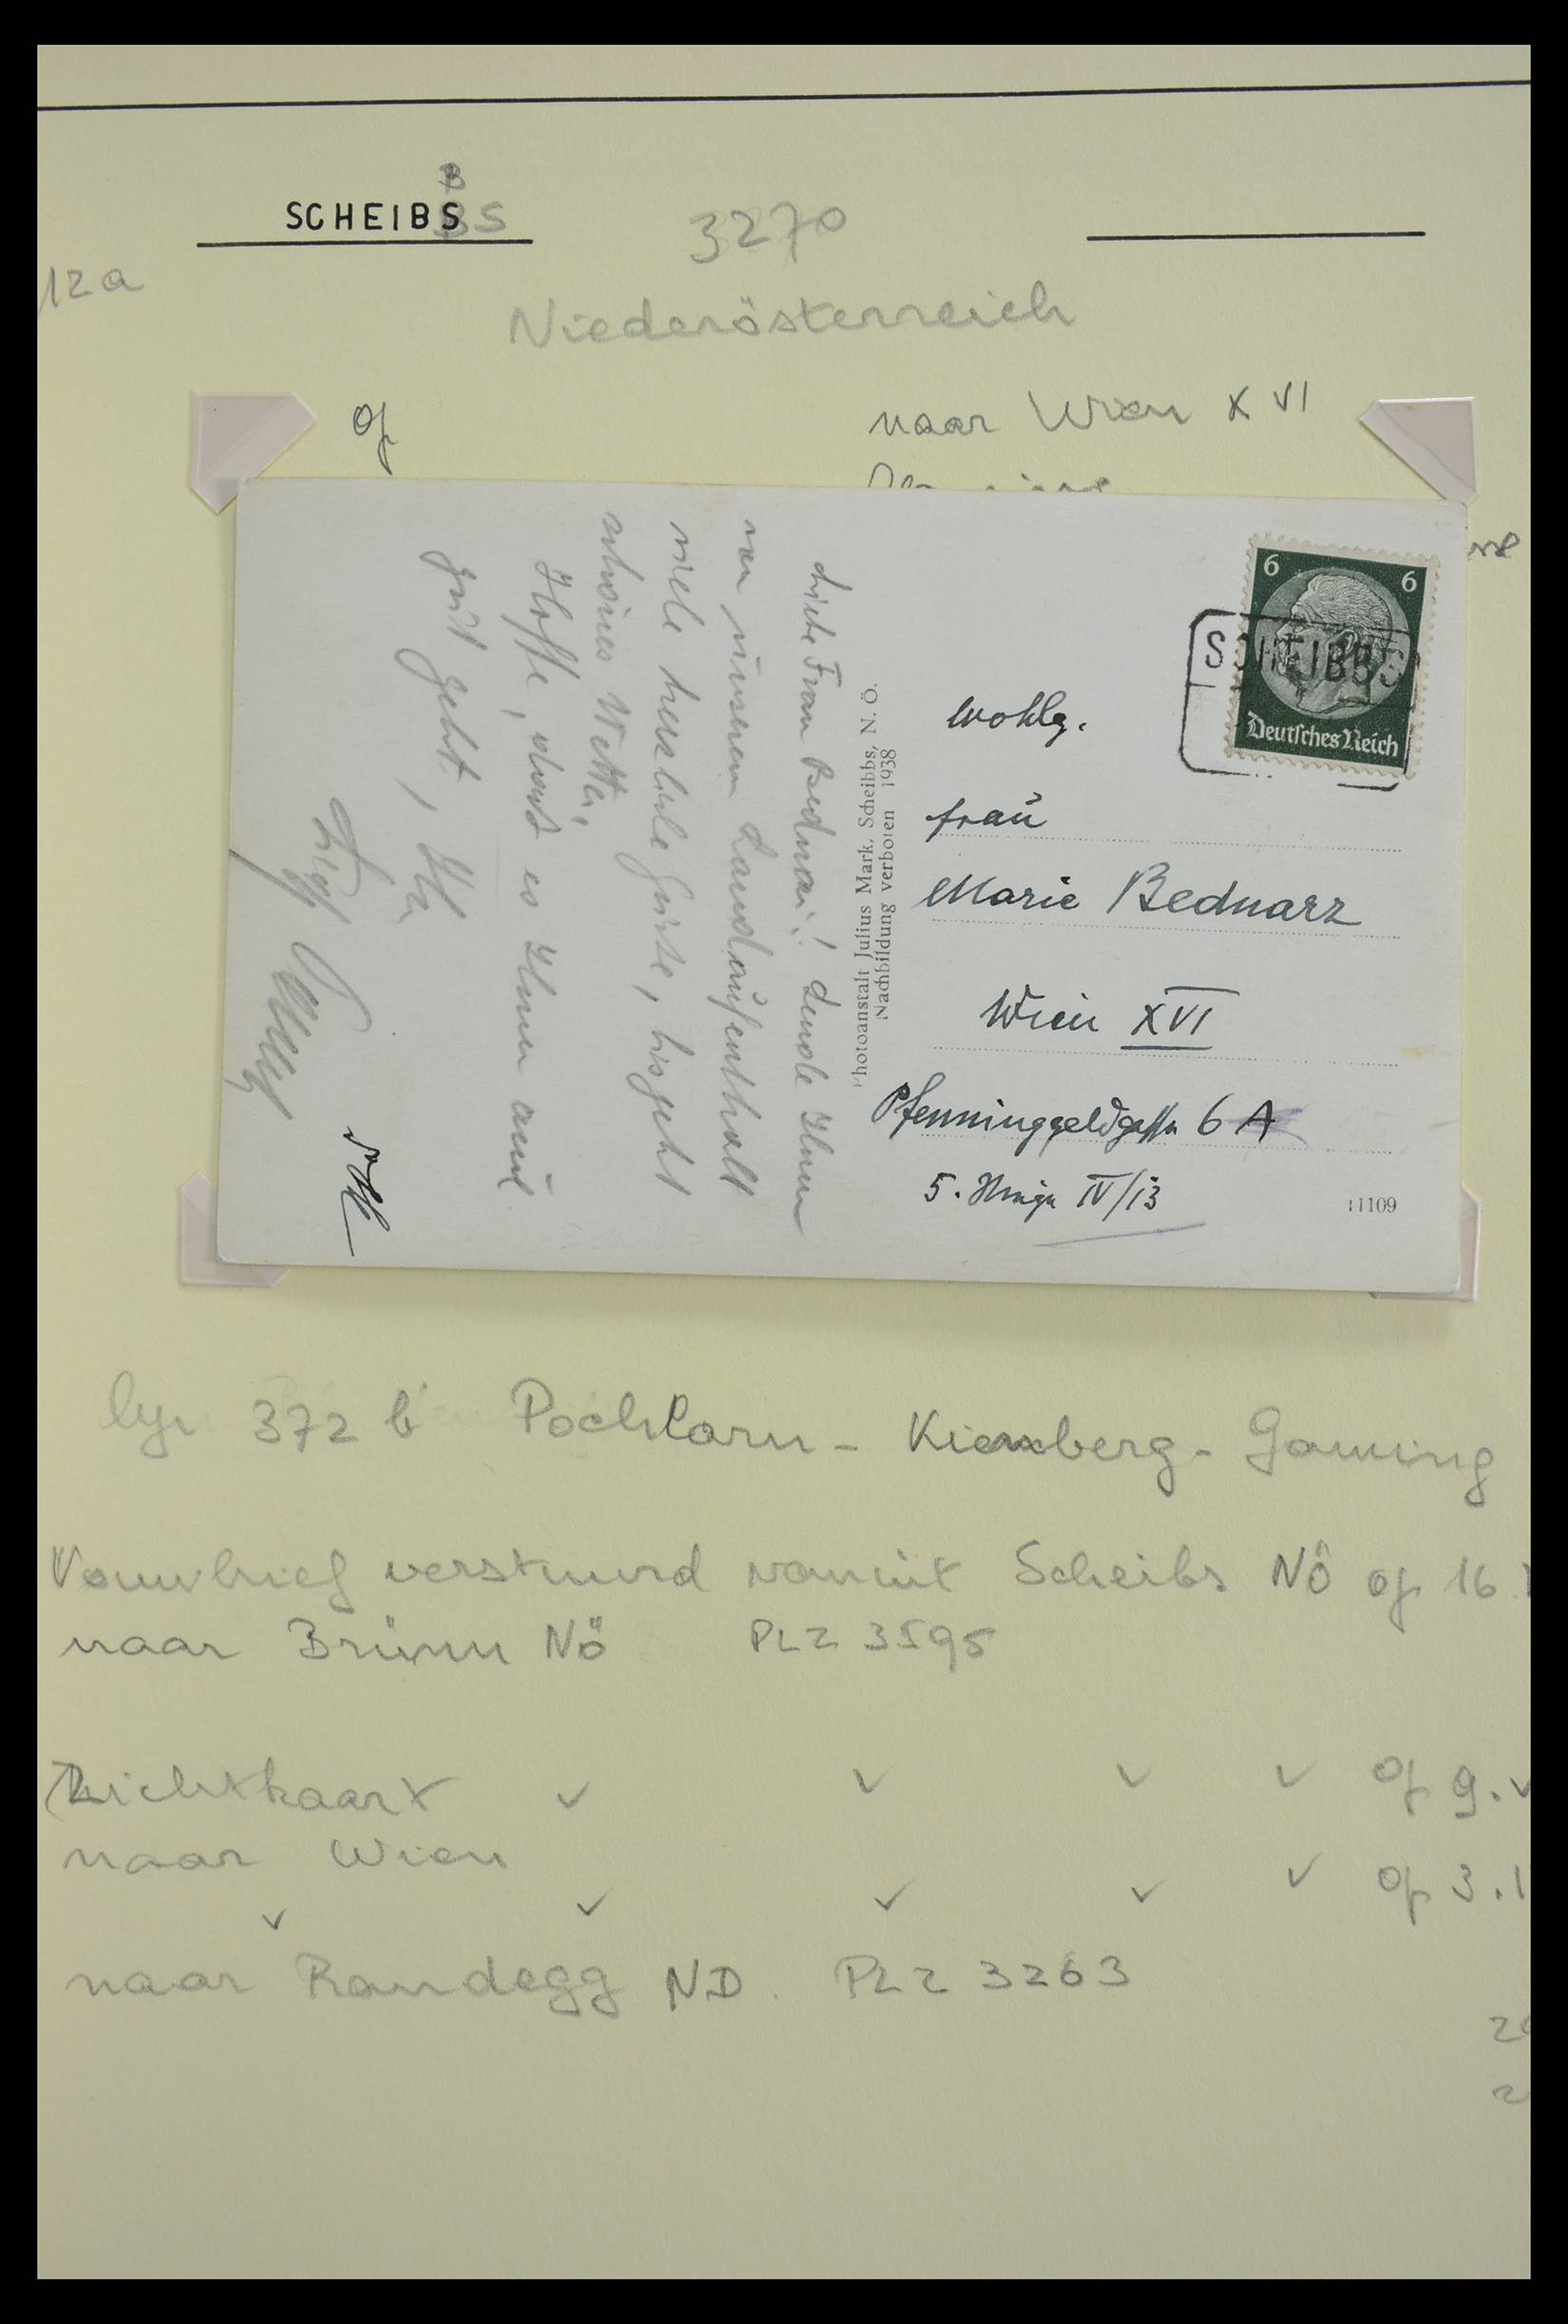 SCHEIBS
BS
3270
12a
Niederösterreich
of
naar Wien XVI
6 6
SCHEIBBS
Deutsches Reich
Wohlg.
Frau
Marie Bednarz
Wien XVI
Pfenninggeldgasse 6 A
5. Stiege IV/13
11109
Photoanstalt Julius Mark, Scheibbs, N. Ö.
Nachbildung verboten 1938
Liebe Frau Bednarz! Sende Ihnen
von unserem Landaufenthalt
viele herzliche Grüße, bis jetzt
schönes Wetter,
Hoffe, dass es Ihnen auch
gut geht,
lyn 372 b Pochlarn - Kienberg - Gaming
Vouwbrief verstuurd vanuit Scheibs NÖ op 16
naar Brünn NÖ PLZ 3595
Zichtkaart ✓ ✓ ✓ ✓ op 9.
naar Wien
✓ ✓ ✓ ✓ ✓ op 3.1
naar Randegg NÖ. PLZ 3263